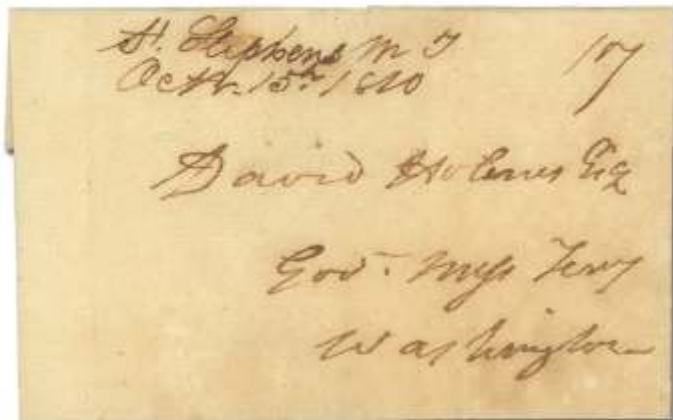 St. Stephens M T 17
Octr. 15th 1810
David Holmes Esq
Gov. Miss Terry
Washington